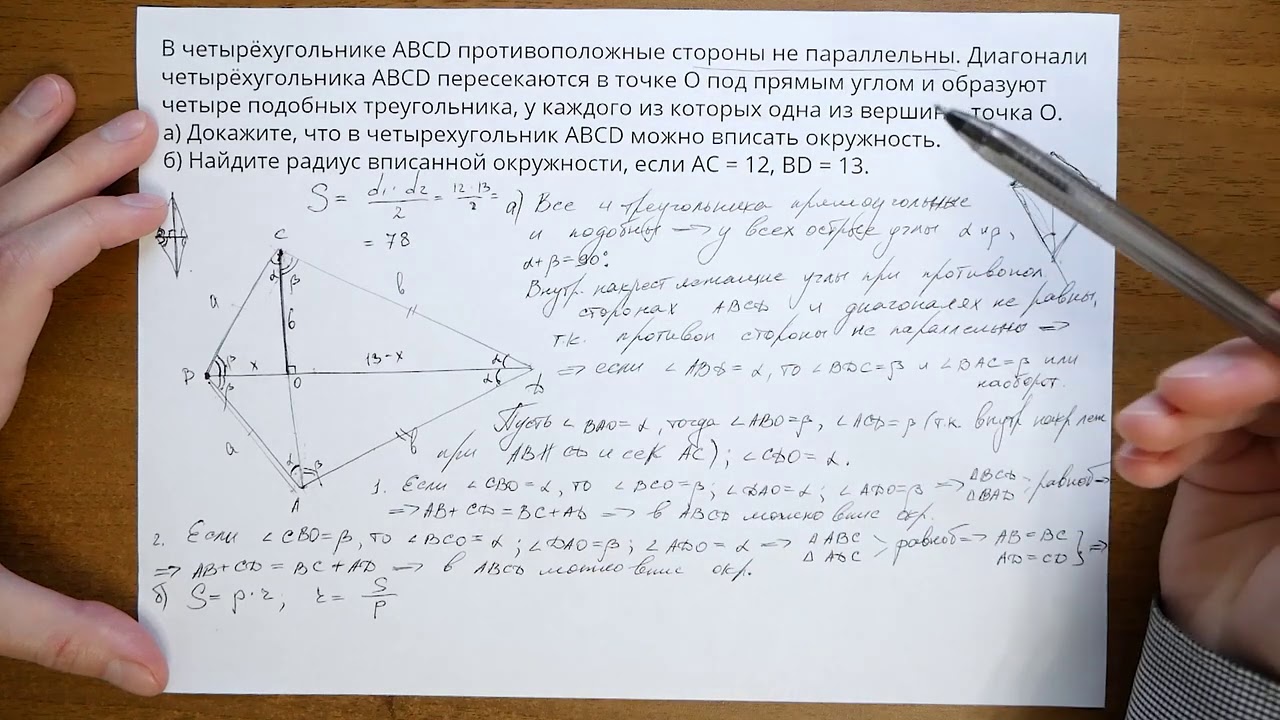 В четырёхугольнике ABCD противоположные стороны не параллельны. Диагонали
четырёхугольника ABCD пересекаются в точке O под прямым углом и образуют
четыре подобных треугольника, у каждого из которых одна из вершин точка O.
а) Докажите, что в четырехугольник ABCD можно вписать окружность.
б) Найдите радиус вписанной окружности, если AC = 12, BD = 13.
S = d₁·d₂/2 = 12·13/2 =
= 78
а) Все 4 треугольника прямоугольные
и подобны → у всех острые углы α и β,
α+β=90°.
Внутр. накрест лежащие углы при противопол.
сторонах ABCD и диагоналях не равны,
т.к. противоп стороны не параллельны ⇒
⇒ если ∠ABD = α, то ∠BDC=β и ∠BAC=β или
наоборот.
Пусть ∠BAO=α, тогда ∠ABO=β, ∠ACD=β (т.к. внутр накр леж
при AB∦CD и сек AC); ∠CDO=α.
1. Если ∠CBO=α, то ∠BCO=β; ∠DAO=α; ∠ADO=β ⇒ ΔBCD ΔBAD - равноб ⇒
⇒ AB+CD=BC+AD ⇒ в ABCD можно впис окр.
2. Если ∠CBO=β, то ∠BCO=α; ∠DAO=β; ∠ADO=α ⇒ ΔABC ΔADC > равноб ⇒ AB=BC AD=CD } ⇒
⇒ AB+CD=BC+AD → в ABCD можно впис окр.
б) S=p·r; r = S/p
C
α
β
a
b
6
β
β
x
13-x
α
α
O
D
a
b
α
β
A